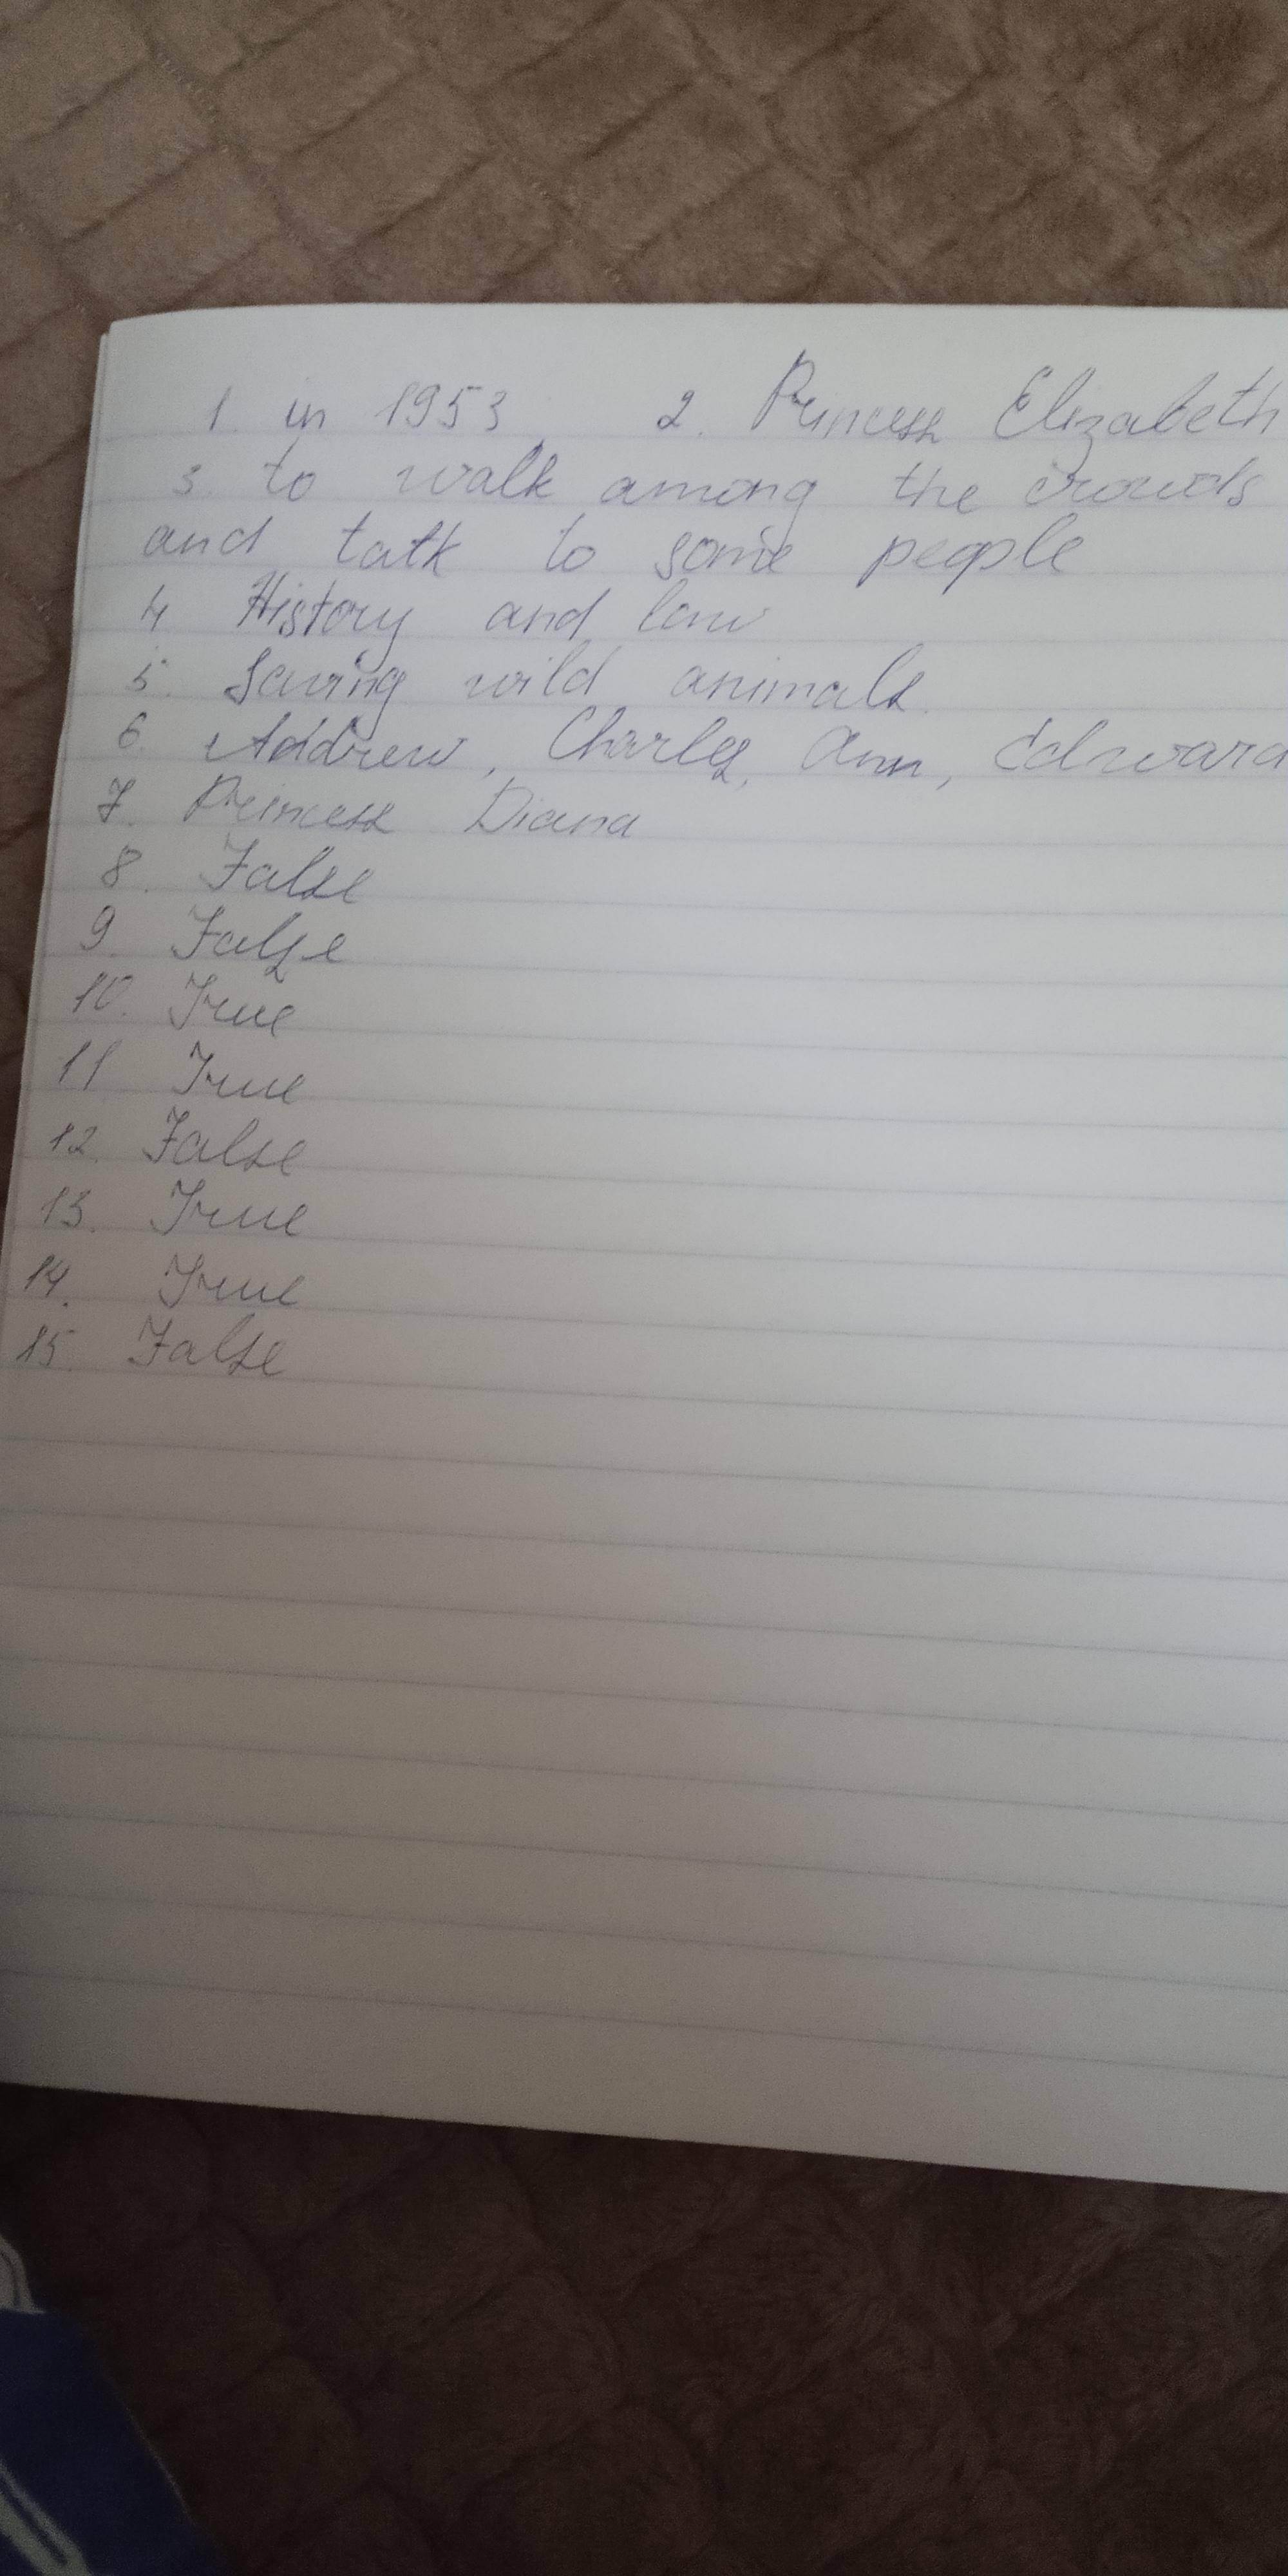 1. in 1953 2. Princess Elizabeth
3. to walk among the crowds
and talk to some people
4 History and law
5. Saving wild animals.
6. Addrew, Charles, Ann, Edward
7. Princess Diana
8. False
9. False
10. True
11 True
12. False
13. True
14. True
15. False